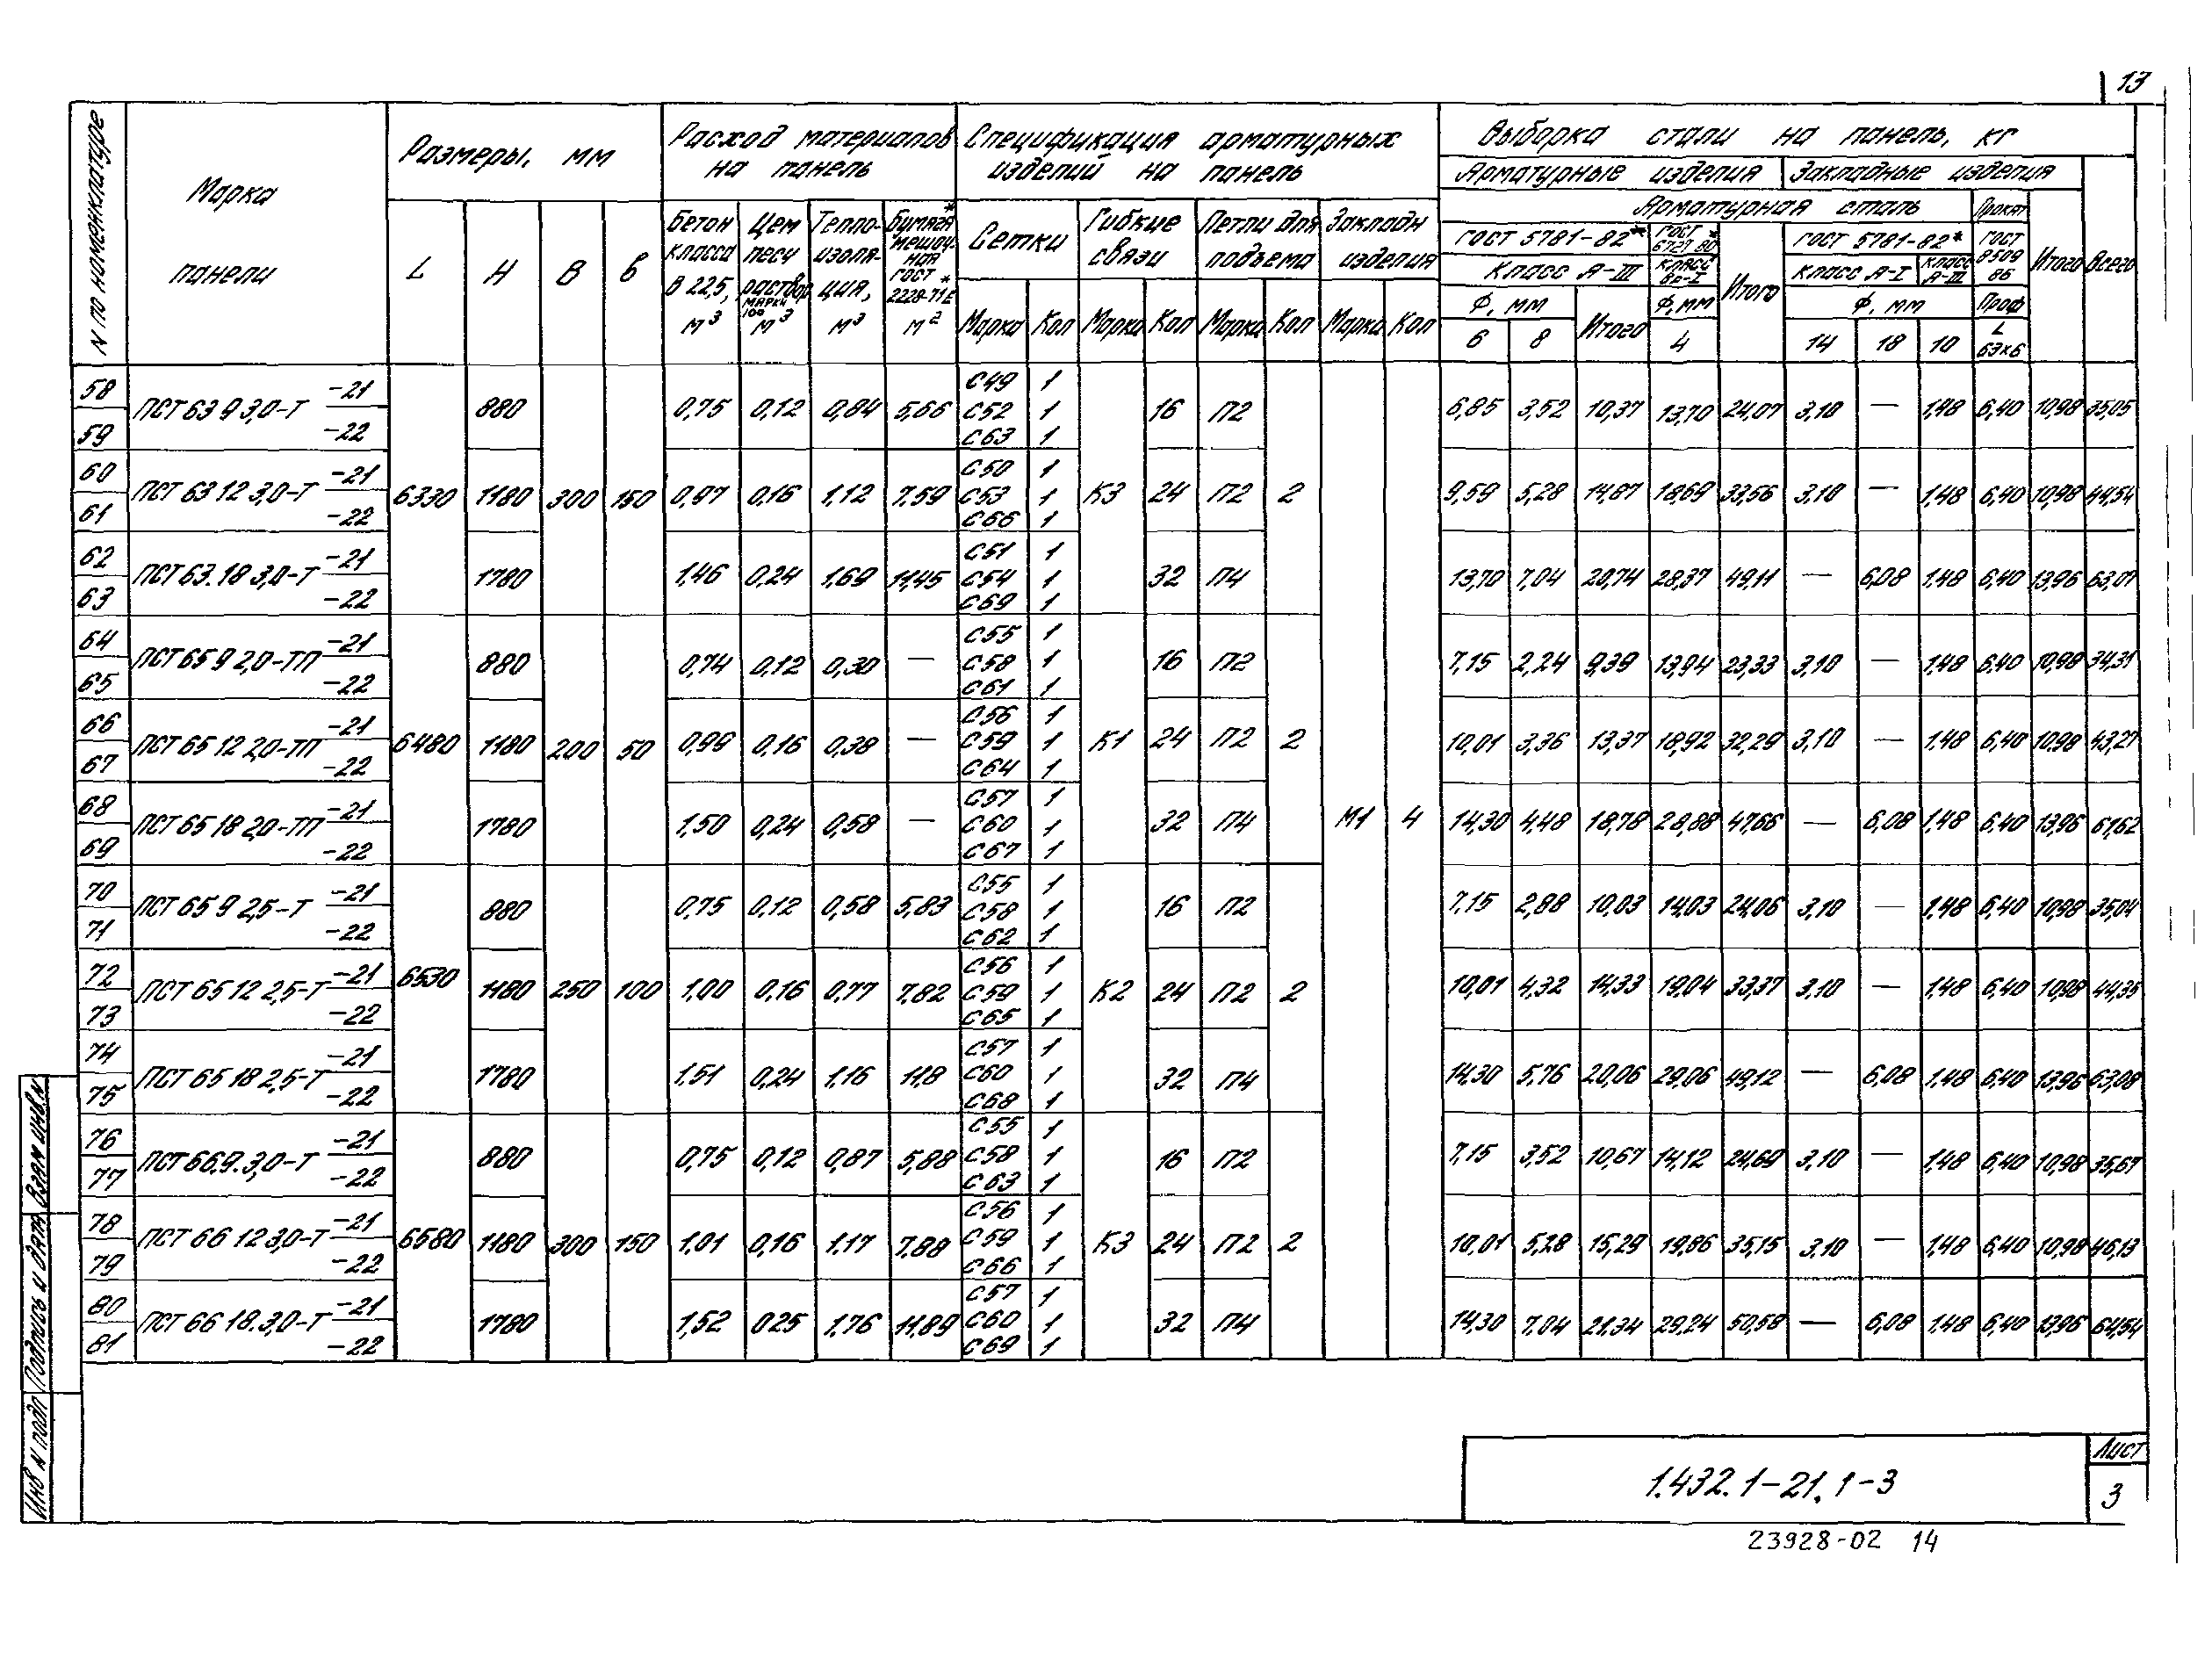 13
N по номенклатуре
Марка панели
Размеры, мм
Расход материалов на панель
Спецификация арматурных изделий на панель
Выборка стали на панель, кг
Арматурные изделия
Закладные изделия
Всего
L
H
B
б
Бетон класса В 22,5, м³
Цем песч раствор марки 100 м³
Тепло- изоля- ция, м³
Бумага* мешоч- ная ГОСТ* 2228-71Е м²
Сетки
Гибкие связи
Петли для подъема
Закладн изделия
Арматурная сталь
Прокат
ГОСТ 5781-82*
ГОСТ* 6727 80
Итого
ГОСТ 5781-82*
ГОСТ 8509 86
Итого
Класс А-III
Класс Вр-I
Класс А-I
Класс А-III
Марка Кол Марка Кол Марка Кол Марка Кол
Ф, мм
Итого
Ф, мм
Ф, мм
Проф
6 8 4 14 18 10 L 63х6
58 59 ПСТ 63 9 3,0-Т -21 -22 880 0,75 0,12 0,84 5,66 С49 1 С52 1 С63 1 16 П2 6,85 3,52 10,37 13,70 24,07 3,10 — 1,48 6,40 10,98 35,05
60 61 ПСТ 63 12 3,0-Т -21 -22 6330 1180 300 150 0,97 0,16 1,12 7,59 С50 1 С53 1 С66 1 К3 24 П2 2 9,59 5,28 14,87 18,69 33,56 3,10 — 1,48 6,40 10,98 44,54
62 63 ПСТ 63.18 3,0-Т -21 -22 1780 1,46 0,24 1,69 11,45 С51 1 С54 1 С69 1 32 П4 13,70 7,04 20,74 28,37 49,11 — 6,08 1,48 6,40 13,96 63,07
64 65 ПСТ 65 9 2,0-ТП -21 -22 880 0,74 0,12 0,30 — С55 1 С58 1 С61 1 16 П2 7,15 2,24 9,39 13,94 23,33 3,10 — 1,48 6,40 10,98 34,31
66 67 ПСТ 65 12 2,0-ТП -21 -22 6480 1180 200 50 0,99 0,16 0,38 — С56 1 С59 1 С64 1 К1 24 П2 2 10,01 3,36 13,37 18,92 32,29 3,10 — 1,48 6,40 10,98 43,27
68 69 ПСТ 65 18 2,0-ТП -21 -22 1780 1,50 0,24 0,58 — С57 1 С60 1 С67 1 32 П4 М1 4 14,30 4,48 18,78 28,88 47,66 — 6,08 1,48 6,40 13,96 61,62
70 71 ПСТ 65 9 2,5-Т -21 -22 880 0,75 0,12 0,58 5,83 С55 1 С58 1 С62 1 16 П2 7,15 2,88 10,03 14,03 24,06 3,10 — 1,48 6,40 10,98 35,04
72 73 ПСТ 65 12 2,5-Т -21 -22 6530 1180 250 100 1,00 0,16 0,77 7,82 С56 1 С59 1 С65 1 К2 24 П2 2 10,01 4,32 14,33 19,04 33,37 3,10 — 1,48 6,40 10,98 44,35
74 75 ПСТ 65 18 2,5-Т -21 -22 1780 1,51 0,24 1,16 11,8 С57 1 С60 1 С68 1 32 П4 14,30 5,76 20,06 29,06 49,12 — 6,08 1,48 6,40 13,96 63,08
76 77 ПСТ 66.9.3,0-Т -21 -22 880 0,75 0,12 0,87 5,88 С55 1 С58 1 С63 1 16 П2 7,15 3,52 10,67 14,12 24,69 3,10 — 1,48 6,40 10,98 35,67
78 79 ПСТ 66 12 3,0-Т -21 -22 6580 1180 300 150 1,01 0,16 1,17 7,88 С56 1 С59 1 С66 1 К3 24 П2 2 10,01 5,28 15,29 19,86 35,15 3,10 — 1,48 6,40 10,98 46,13
80 81 ПСТ 66 18.3,0-Т -21 -22 1780 1,52 025 1,76 11,89 С57 1 С60 1 С69 1 32 П4 14,30 7,04 21,34 29,24 50,58 — 6,08 1,48 6,40 13,96 64,54
Инв N подл Подпись и дата Взам инв.N
1.432.1-21.1-3
Лист
3
23928-02 14